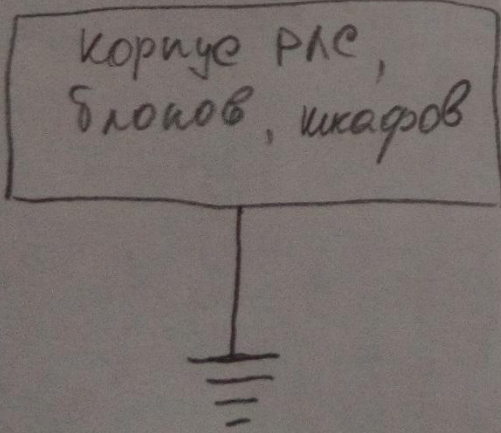 корпус РЛС,
блоков, шкафов